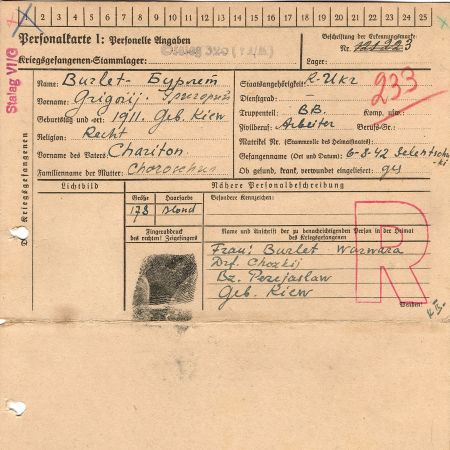 2 3 4 5 6 7 8 9 10 11 12 13 14 15 16 17 18 19 20 21 22 23 24 25
Personalkarte I: Personelle Angaben
Kriegsgefangenen-Stammlager: Stalag 326 (VI/K)
Beschriftung der Erkennungsmarke:
Nr.
Lager:
Stalag VI/G
Des Kriegsgefangenen
Name: Burlet - Бурлет
Vorname: Grigorij. Григорий
Geburtstag und -ort: 1911. Geb. Kiew
Religion: Recht
Vorname des Vaters: Chariton.
Familienname der Mutter:
Staatsangehörigkeit: R-Ukr
Dienstgrad: -
Truppenteil: BB. Komp. usw.:
Zivilberuf: Arbeiter Berufs-Gr.:
Matrikel Nr. (Stammrolle des Heimatstaates):
Gefangennahme (Ort und Datum): 6-8-42
Ob gesund, krank, verwundet eingeliefert: ges
233
Lichtbild
Nähere Personalbeschreibung
Größe Haarfarbe Besondere Kennzeichen:
178 blond
Fingerabdruck
des rechten! Zeigefingers
Name und Anschrift der zu benachrichtigenden Person in der Heimat
des Kriegsgefangenen
Frau: Burlet Warwara
Drf. Chozkij
Bz. Perejaslaw
Geb. Kiew
R
Wenden!